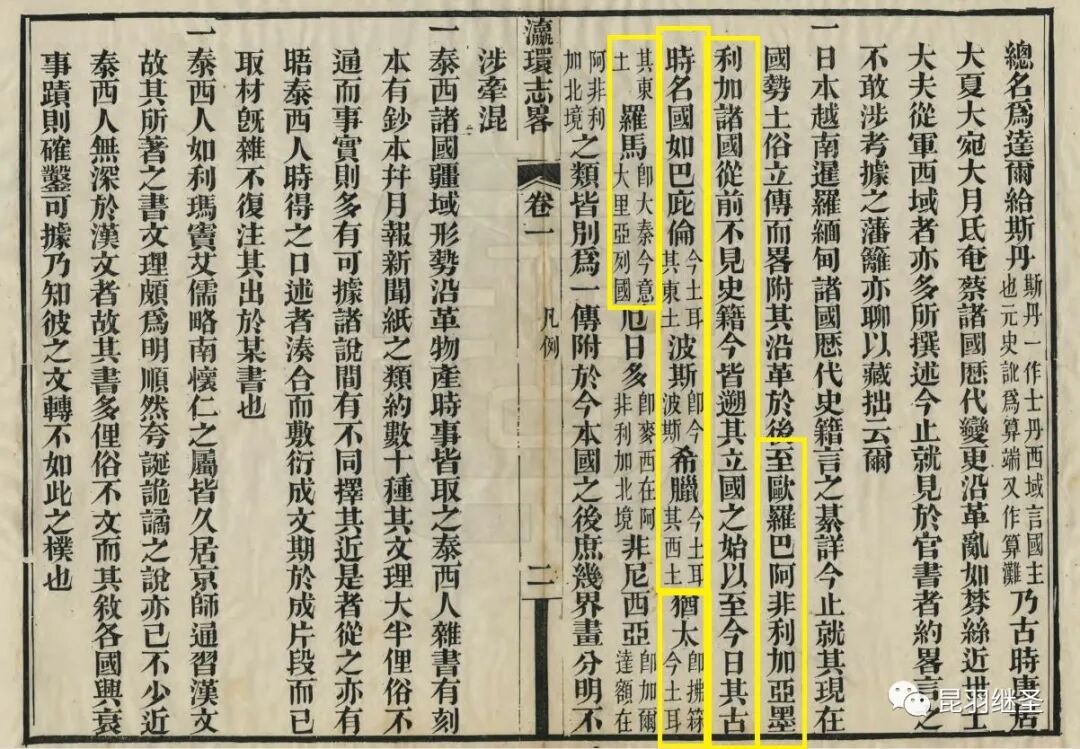 總名爲達爾給斯丹斯丹一作士丹西域言國主也元史訛爲算端又作算灘乃古時康居
大夏大宛大月氏奄蔡諸國歷代變更沿革亂如棼絲近世士
大夫從軍西域者亦多所撰述今止就見於官書者約畧言之
不敢涉考據之藩籬亦聊以藏拙云爾
一日本越南暹羅緬甸諸國歷代史籍言之綦詳今止就其現在
國勢土俗立傳而畧附其沿革於後至歐羅巴阿非利加亞墨
利加諸國從前不見史籍今皆遡其立國之始以至今日其古
時名國如巴庇倫今土耳其東土波斯卽今波斯希臘今土耳其西土猶太卽拂箖今土耳
其東土羅馬卽大秦今意大里亞列國厄日多卽麥西在阿非利加北境非尼西亞卽加爾達額在
阿非利加北境之類皆別爲一傳附於今本國之後庶幾界畫分明不
瀛環志畧
卷一
凡例
二
涉牽混
一泰西諸國疆域形勢沿革物產時事皆取之泰西人雜書有刻
本有鈔本幷月報新聞紙之類約數十種其文理大半俚俗不
通而事實則多有可據諸說間有不同擇其近是者從之亦有
晤泰西人時得之口述者湊合而敷衍成文期於成片段而已
取材旣雜不復注其出於某書也
一泰西人如利瑪竇艾儒略南懷仁之屬皆久居京師通習漢文
故其所著之書文理頗爲明順然夸誕詭譎之說亦已不少近
泰西人無深於漢文者故其書多俚俗不文而其敘各國興衰
事蹟則確鑿可據乃知彼之文轉不如此之樸也
昆羽继圣